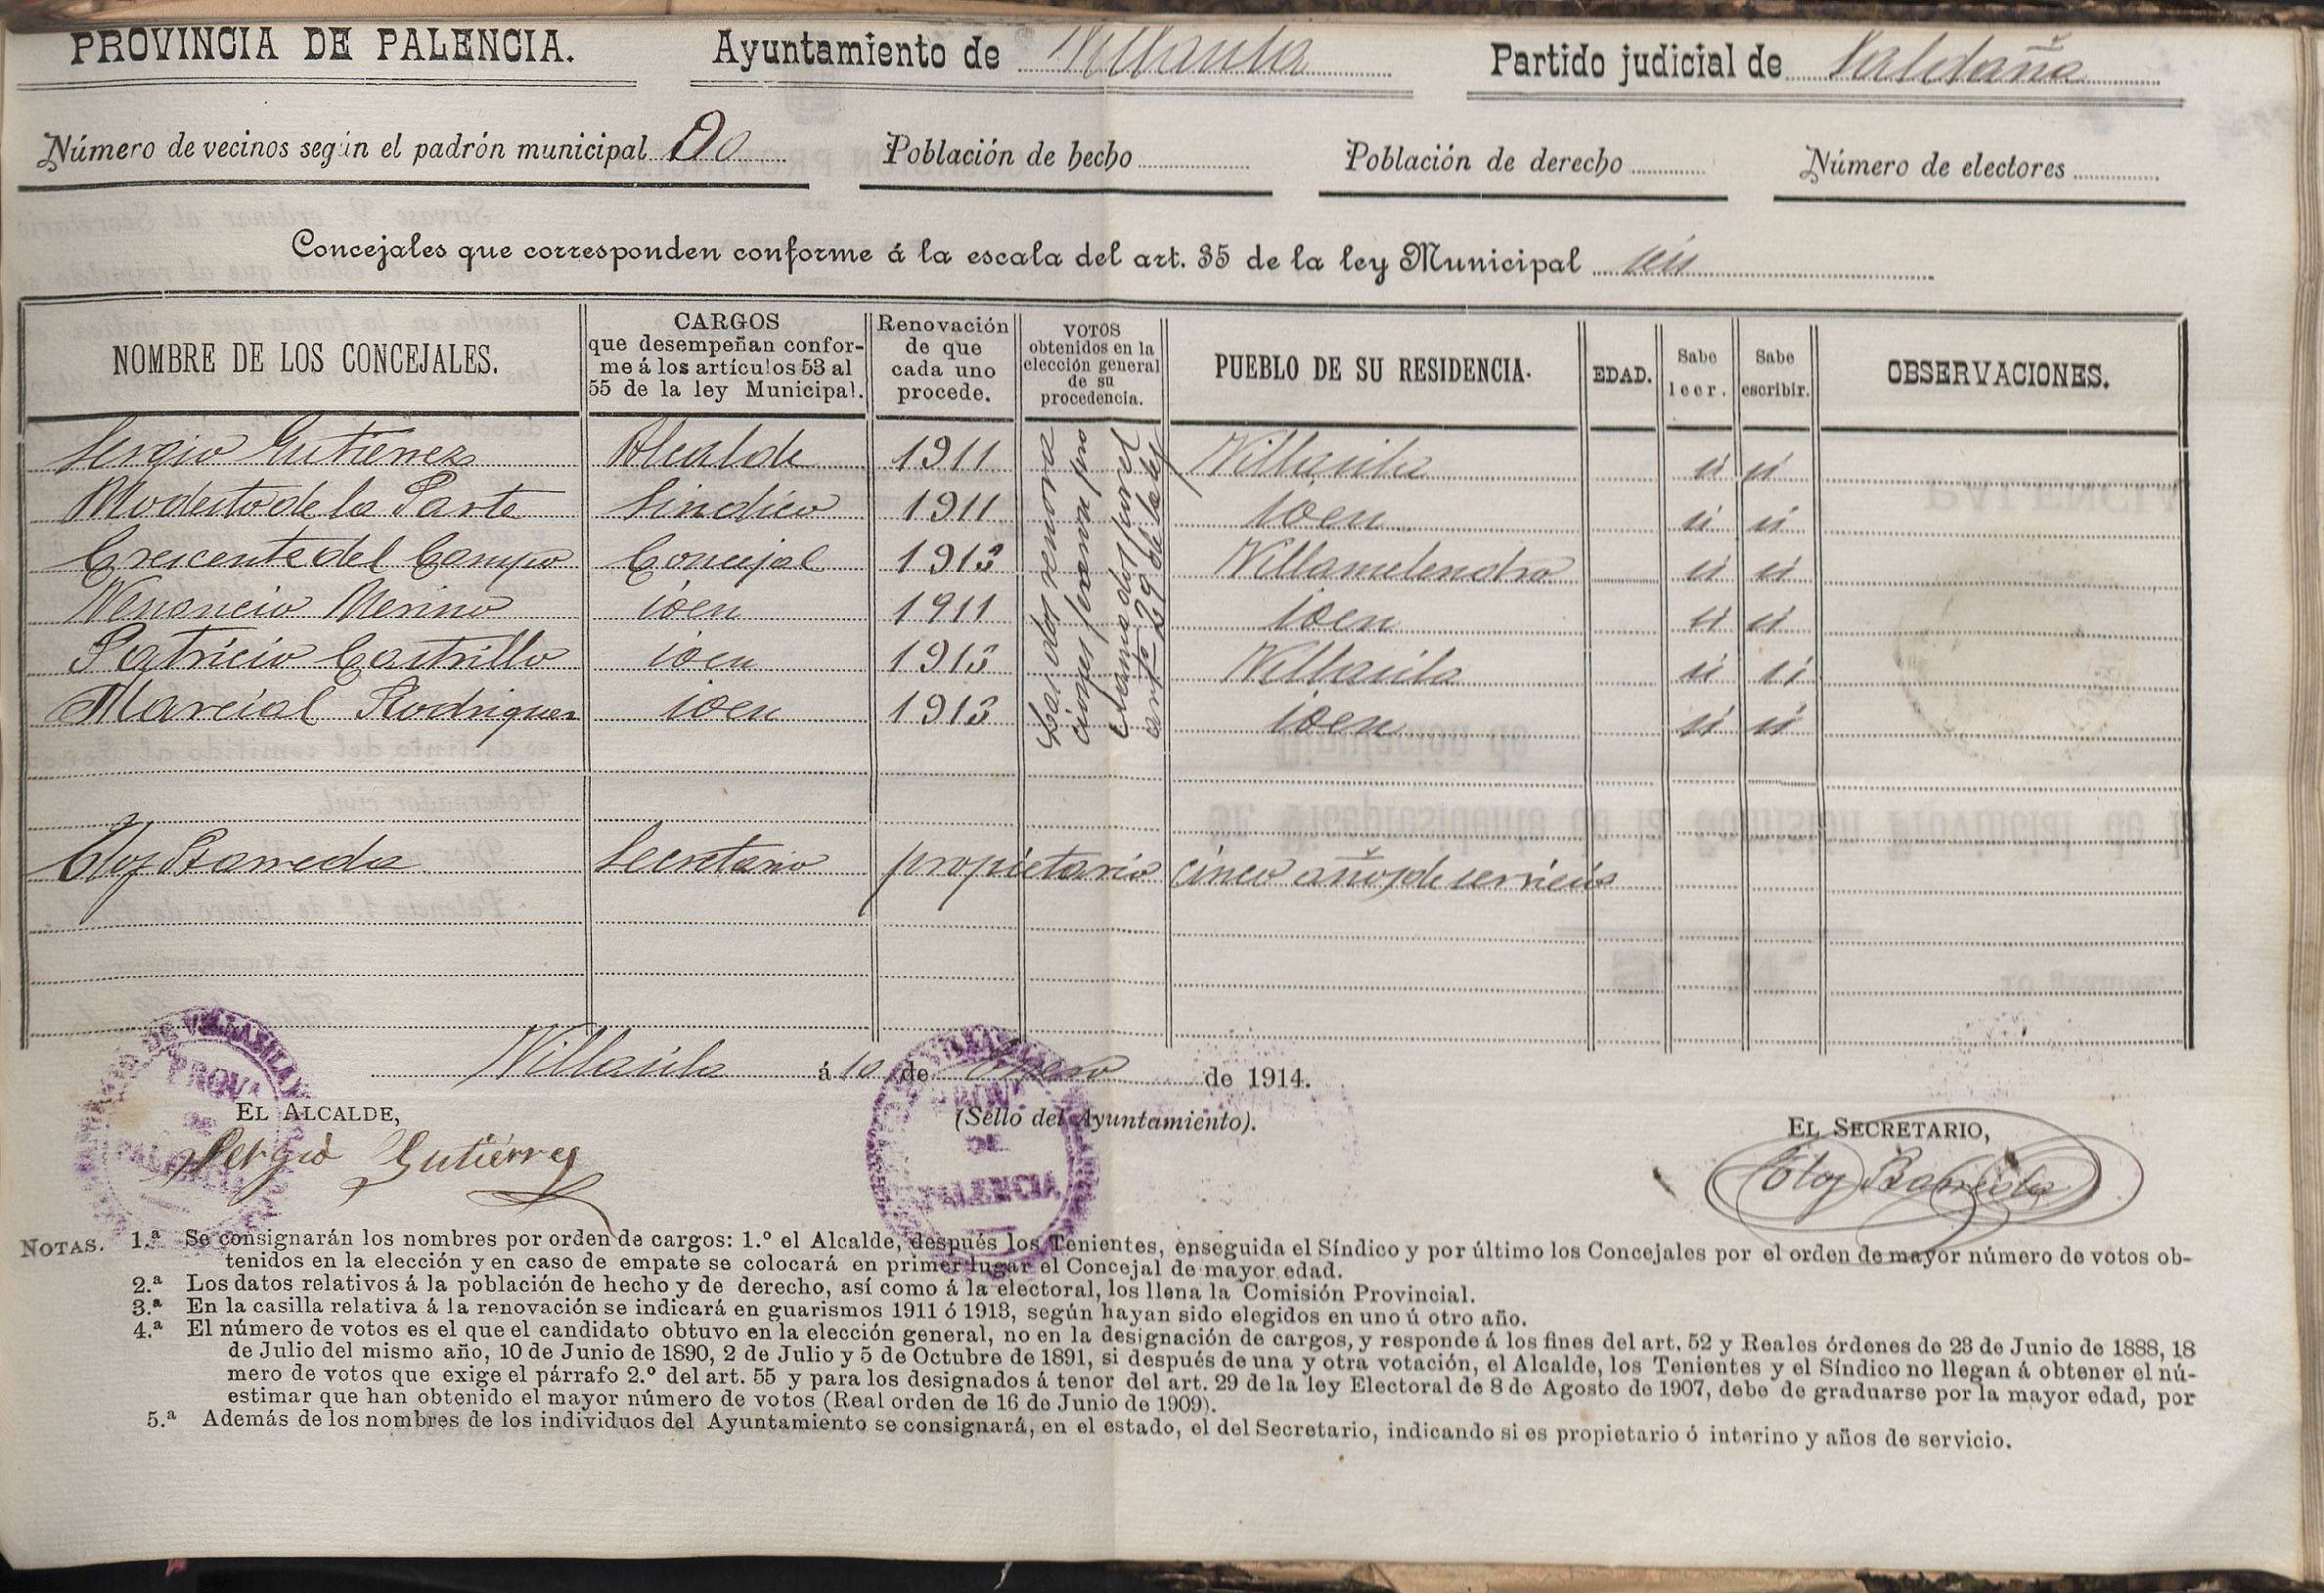 PROVINCIA DE PALENCIA. Ayuntamiento de Villasila Partido judicial de Saldaña
Número de vecinos según el padrón municipal Población de hecho Población de derecho Número de electores
Concejales que corresponden conforme á la escala del art. 35 de la ley Municipal seis
NOMBRE DE LOS CONCEJALES.
CARGOS
que desempeñan confor-
me á los artículos 53 al
55 de la ley Municipal.
Renovación
de que
cada uno
procede.
VOTOS
obtenidos en la
elección general
de su
procedencia.
PUEBLO DE SU RESIDENCIA.
EDAD.
Sabe
leer.
Sabe
escribir.
OBSERVACIONES.
Sergio Gutierrez Alcalde 1911 Villasila si si
Modesto de la Parte Sindico 1911 iden si si
Crescente del Campo Concejal 1913 Villamelendro si si
Venancio Merino iden 1911 iden si si
Patricio Castrillo iden 1913 Villasila si si
Marcial Rodriguez iden 1913 iden si si
Las dos renova
ciones fueron pro
clamados por el
art.º 29 de la ley
Eloy Barreda Secretario propietario cinco años de servicios
Villasila á 10 de Enero de 1914.
EL ALCALDE,
(Sello del Ayuntamiento).
EL SECRETARIO,
Sergio Gutiérrez
Eloy Barreda
DE VILLASILA
PROV.ª
DE
PALENCIA
PROV.ª
DE
PALENCIA
NOTAS. 1.ª Se consignarán los nombres por orden de cargos: 1.º el Alcalde, después los Tenientes, enseguida el Síndico y por último los Concejales por el orden de mayor número de votos ob-
tenidos en la elección y en caso de empate se colocará en primer lugar el Concejal de mayor edad.
2.ª Los datos relativos á la población de hecho y de derecho, así como á la electoral, los llena la Comisión Provincial.
3.ª En la casilla relativa á la renovación se indicará en guarismos 1911 ó 1913, según hayan sido elegidos en uno ú otro año.
4.ª El número de votos es el que el candidato obtuvo en la elección general, no en la designación de cargos, y responde á los fines del art. 52 y Reales órdenes de 23 de Junio de 1888, 18
de Julio del mismo año, 10 de Junio de 1890, 2 de Julio y 5 de Octubre de 1891, si después de una y otra votación, el Alcalde, los Tenientes y el Síndico no llegan á obtener el nú-
mero de votos que exige el párrafo 2.º del art. 55 y para los designados á tenor del art. 29 de la ley Electoral de 8 de Agosto de 1907, debe de graduarse por la mayor edad, por
estimar que han obtenido el mayor número de votos (Real orden de 16 de Junio de 1909).
5.ª Además de los nombres de los individuos del Ayuntamiento se consignará, en el estado, el del Secretario, indicando si es propietario ó interino y años de servicio.